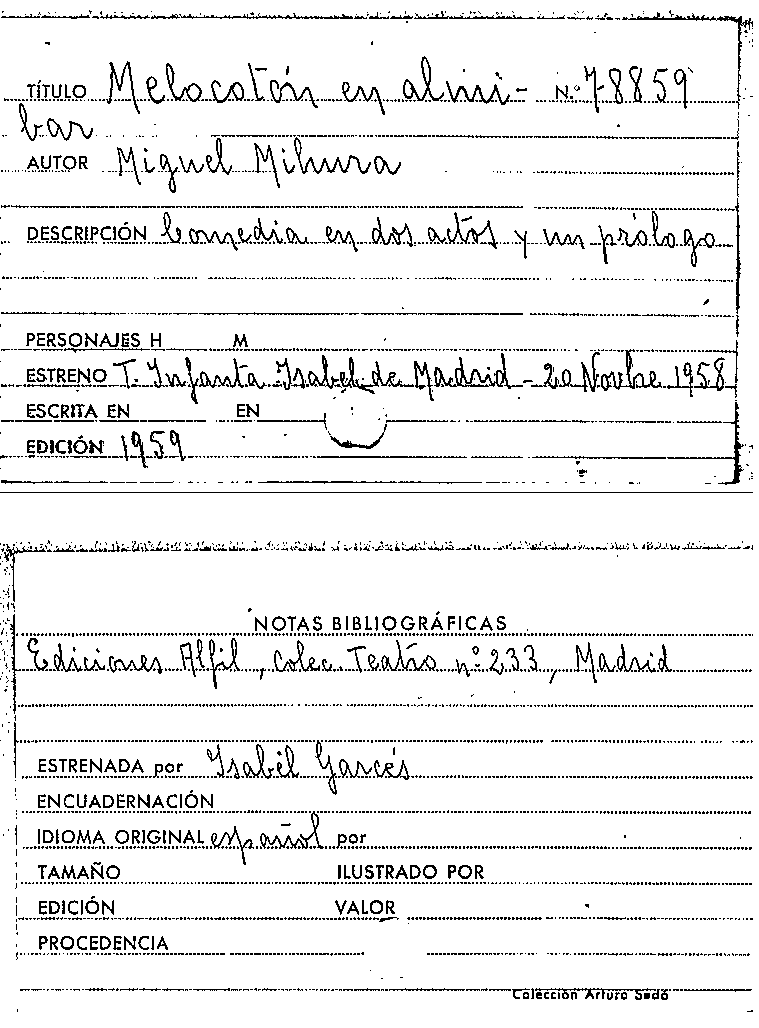 TÍTULO Melocotón en almi- N.º 78859
bar
AUTOR Miguel Mihura
DESCRIPCIÓN Comedia en dos actos y un prólogo
PERSONAJES H M
ESTRENO T. Infanta Isabel de Madrid - 20 Novbre 1958
ESCRITA EN EN
EDICIÓN 1959
NOTAS BIBLIOGRÁFICAS
Ediciones Alfil, Colec. Teatro nº 233, Madrid
ESTRENADA por Isabel Garcés
ENCUADERNACIÓN
IDIOMA ORIGINAL español por
TAMAÑO ILUSTRADO POR
EDICIÓN VALOR
PROCEDENCIA
Colección Arturo Sedó